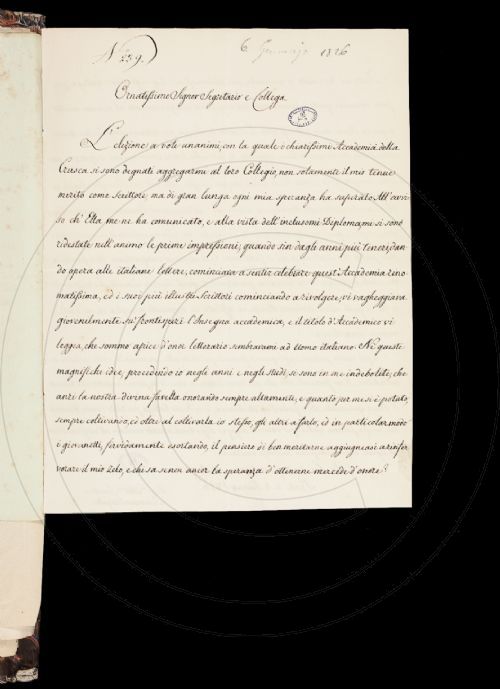 N. 239.
6. Gennajo 1826
Ornatissimo Signor Segretario e Collega
L'elezione a voti unanimi, con la quale i chiarissimi Accademici della
Crusca si sono degnati aggregarmi al loro Collegio, non solamente il mio tenue
merito come scrittore, ma di gran lunga ogni mia speranza ha superato. All'avvi-
so ch'Ella me ne ha comunicato, e alla vista dell'inclusomi Diploma, mi si sono
ridestate nell'animo le prime impressioni, quando sin dagli anni più teneri, dan-
do opera alle italiane lettere, cominciava a sentir celebrare quest'Accademia reno-
matissima, ed i suoi più illustri scrittori cominciando a rivolgere, vi vagheggiava
giovenilmente su' frontespizi l'Insegna accademica, e il titolo d'Accademico vi
leggea, che sommo apice d'onor letterario sembravami ad Uomo italiano. Nè queste
magnifiche idee, procedendo io negli anni e negli studi, si sono in me indebolite, che
anzi la nostra divina favella onorando sempre altamente, e quanto per me si è potuto,
sempre coltivando, ed oltre al coltivarla io stesso, gli altri a farlo, ed in particolar modo
i giovanetti, fervidamente esortando, il pensiero di ben meritarne aggiugneasi a rinfer-
vorare il mio zelo, e chi sa se non ancor la speranza d'ottenerne mercede d'onore?